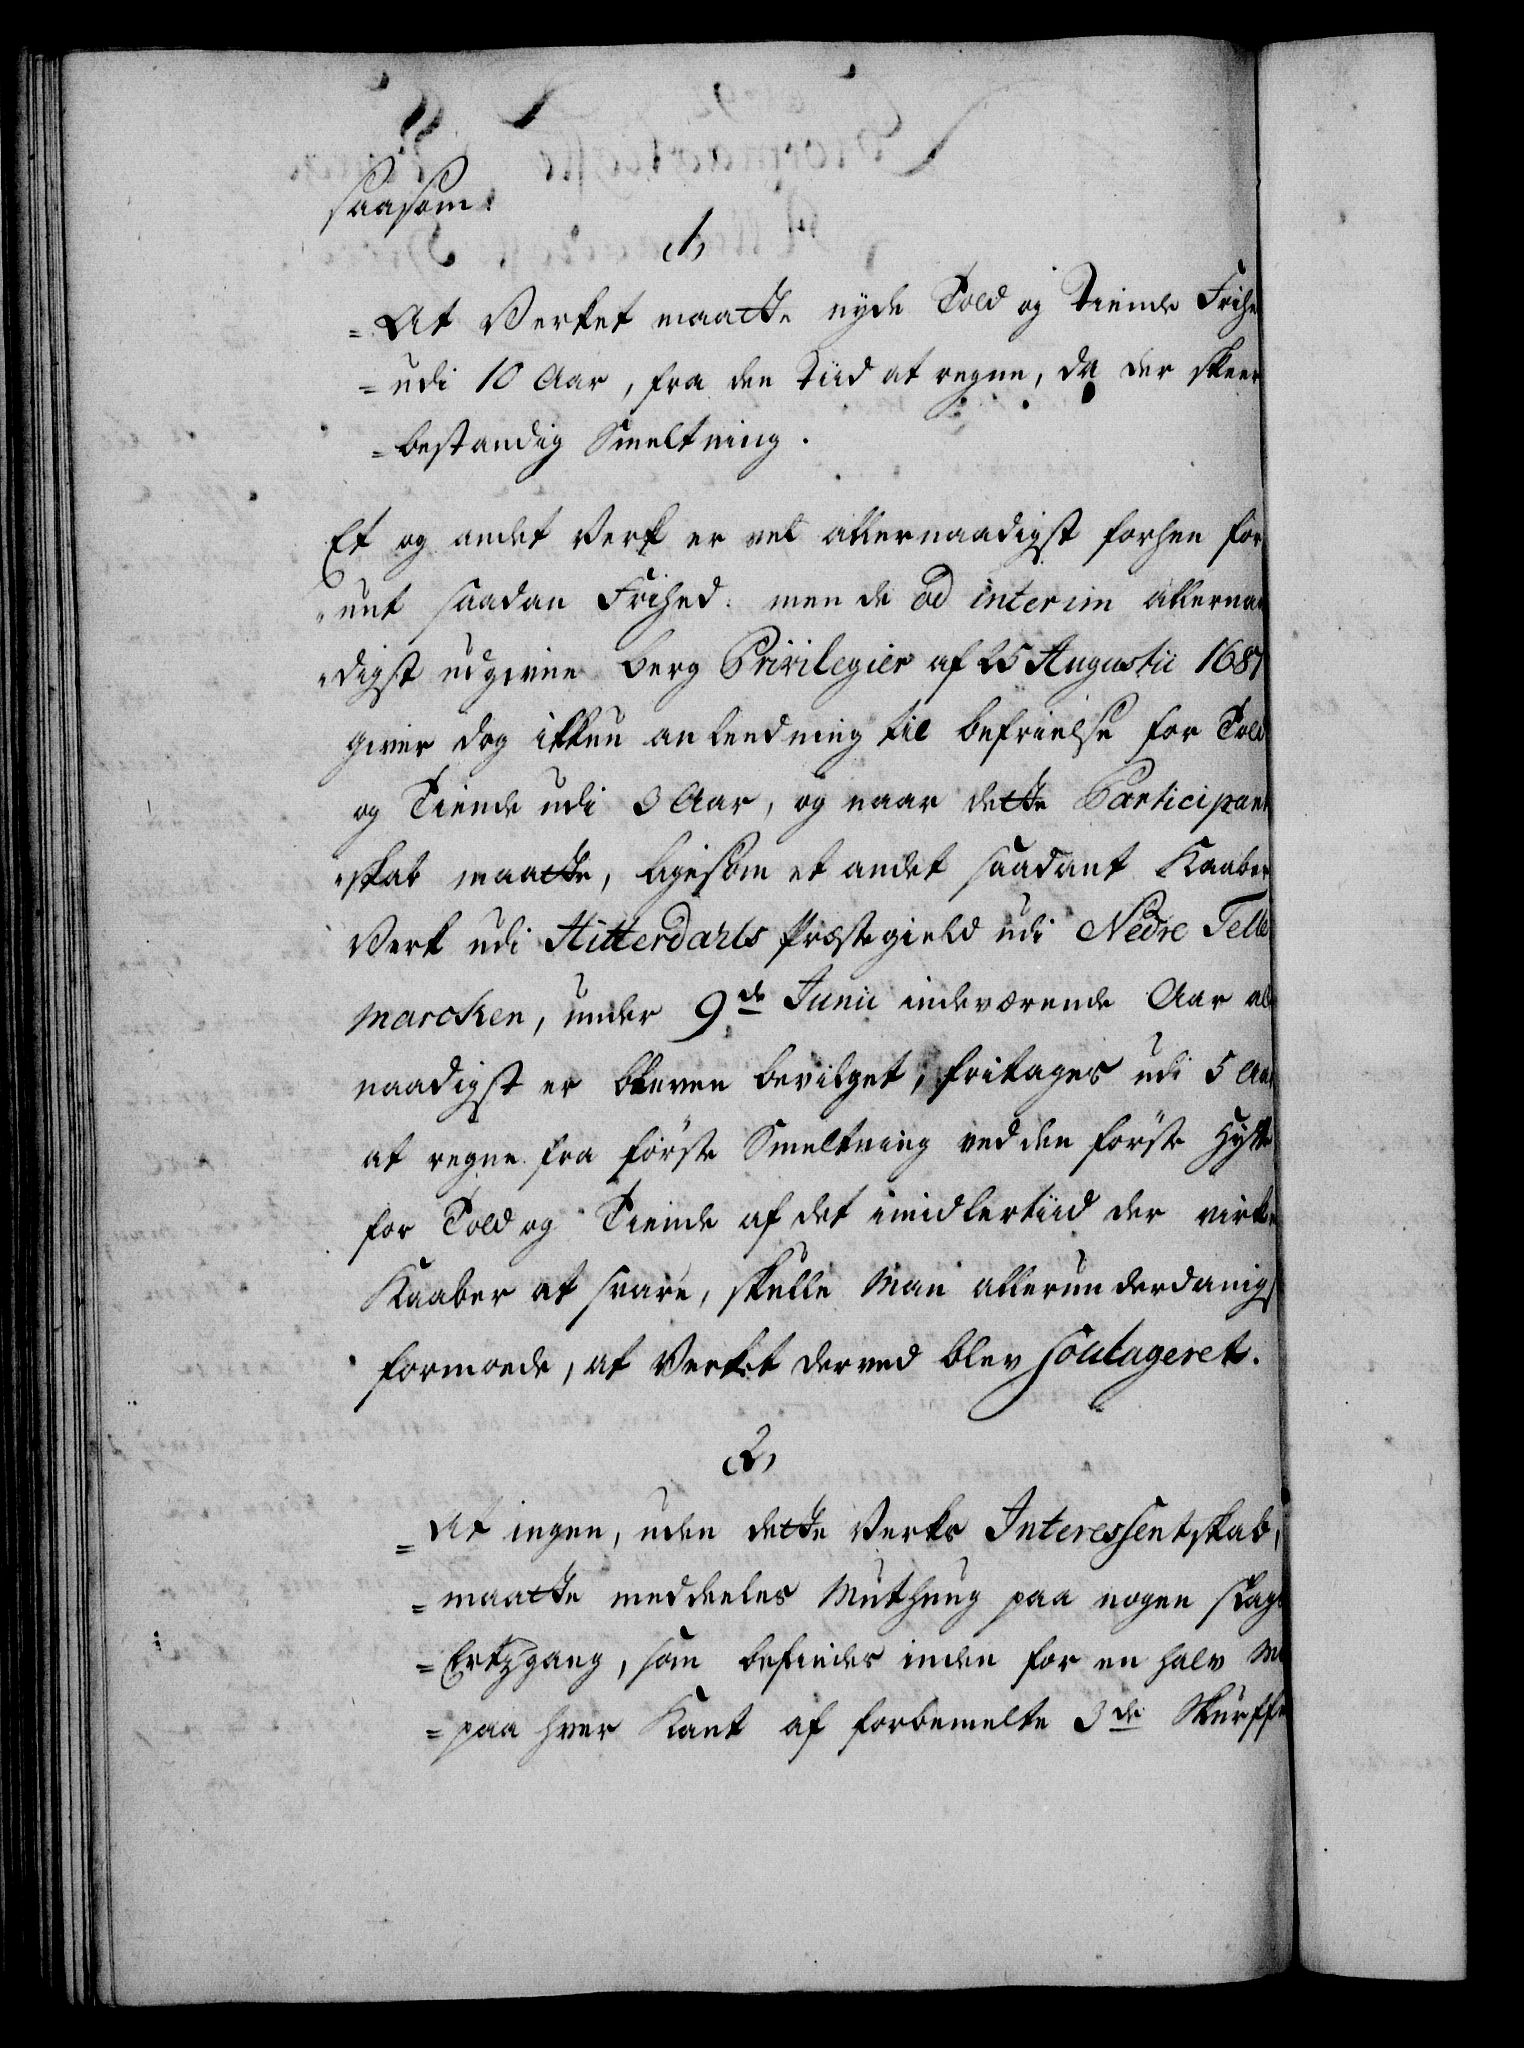 saasom:
1,
= At Verket maatte nyde Told og Tiende Frihe
= udi 10 Aar, fra den Tiid at regne, da der skeer
= bestandig Smeltning.
Et og andet Verk er vel allernaadigst forhen for
„unt saadan Frihed: men de ad interim allernaa
„digst udgivne Berg Privilegier af 25 Augustii 1687
giver dog ikkun anleedning til befrielse for Told
og Tiende udi 3 Aar, og naar dette Participant
„skab maatte, ligesom et andet saadant Kaaber
Verk udi Hitterdahls Præstegield udi Nedre Telle
marcken, under 9de Junii indeværende Aar al
naadigst er bleven bevilget, fritages udi 5 Aar
at regne fra första Smeltning ved den förste Hytte
for Told og Tiende af det imidlertiid der virke
Kaaber at svare, skulle Man allerunderdanigs
formode, at Verket derved blev soulageret.
2,
= At ingen, uden dette Verks Interessentskab,
= maatte meddeeles Muthung paa nogen slags
= Ertzgang, som befindes inden for en halv M
= paa hver Kant af forbemelte 3de Skurffe